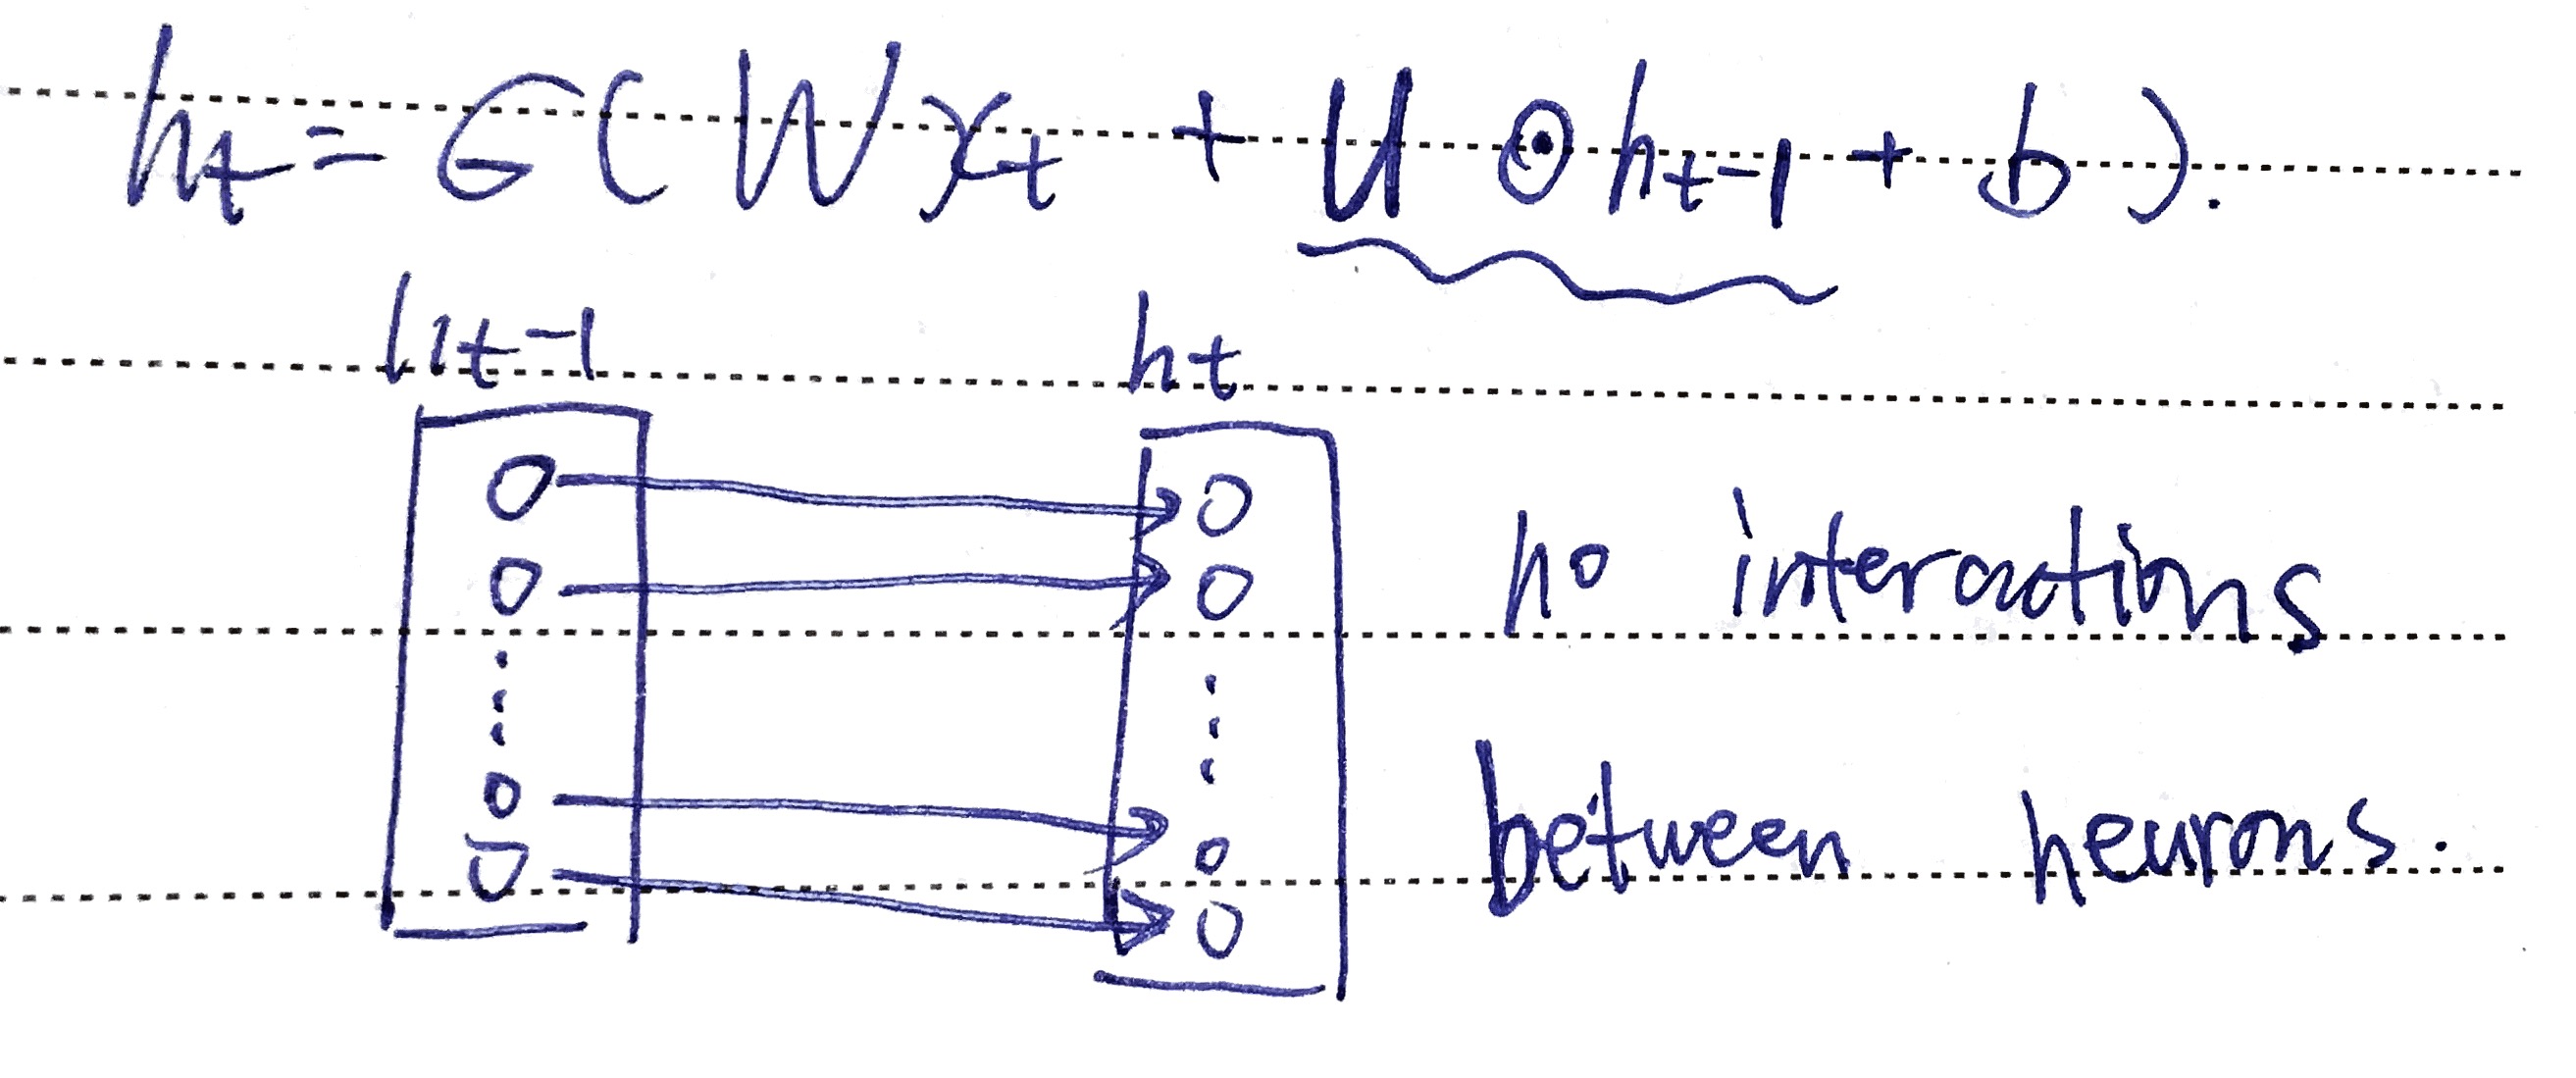 h_t = σ(W x_t + u ⊙ h_{t-1} + b).
h_{t-1} h_t
no interactions
between neurons.